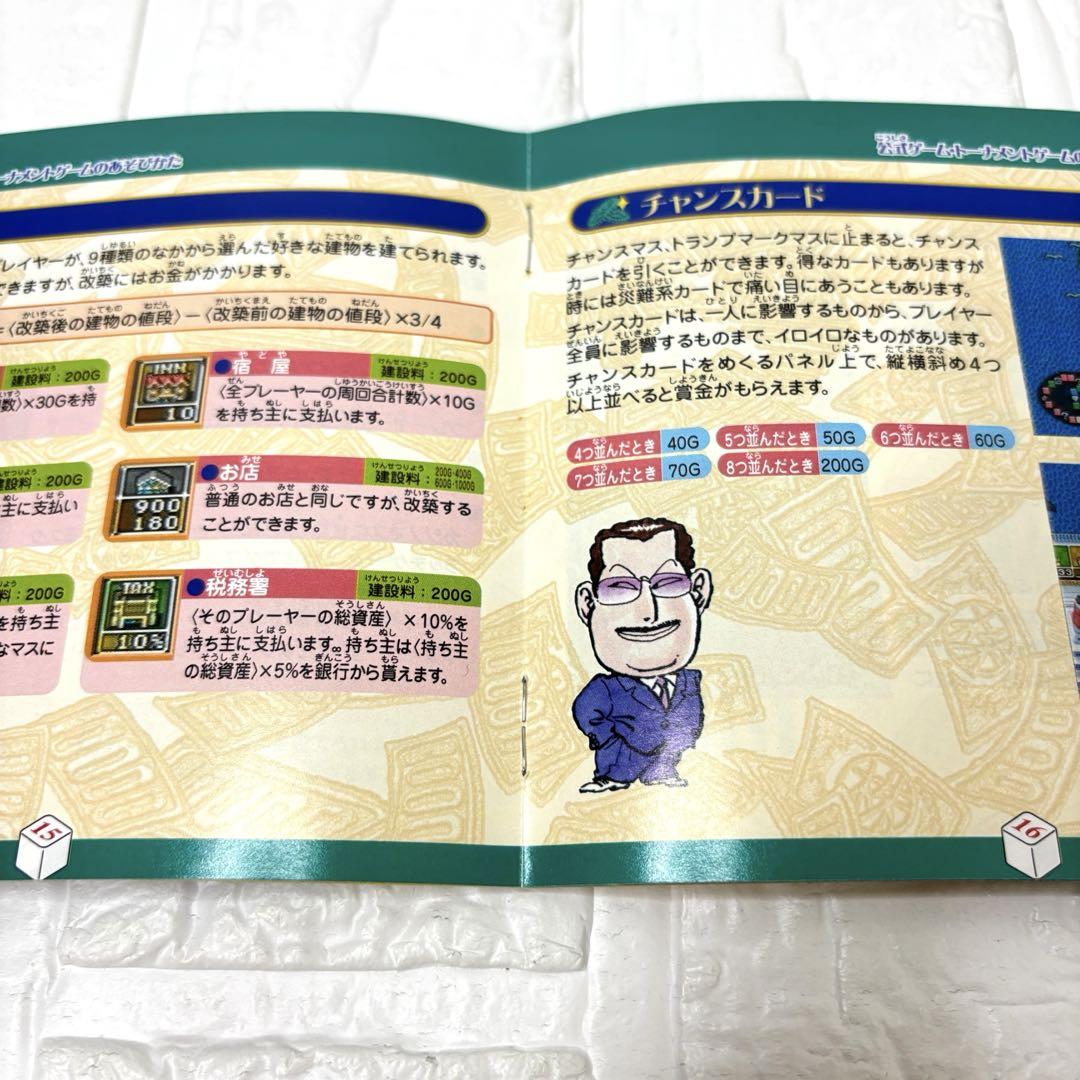 ーナメントゲームのあそびかた
レイヤーが、9種類のなかから選んだ好きな建物を建てられます。
できますが、改築にはお金がかかります。
=〈改築後の建物の値段〉−〈改築前の建物の値段〉×3/4
建設料：200G
数〉×30Gを持
INN
10
●宿屋
建設料：200G
〈全プレーヤーの周回合計数〉×10G
を持ち主に支払います。
建設料：200G
主に支払い
900
180
●お店
建設料：200G・400G
600G・1000G
普通のお店と同じですが、改築する
ことができます。
料：200G
を持ち主
なマスに
TAX
10%
●税務署
建設料：200G
〈そのプレーヤーの総資産〉×10%を
持ち主に支払います。持ち主は〈持ち主
の総資産〉×5%を銀行から貰えます。
15
公式ゲーム・トーナメントゲームの
チャンスカード
チャンスマス、トランプマークマスに止まると、チャンス
カードを引くことができます。得なカードもありますが
時には災難系カードで痛い目にあうこともあります。
チャンスカードは、一人に影響するものから、プレイヤー
全員に影響するものまで、イロイロなものがあります。
チャンスカードをめくるパネル上で、縦横斜め4つ
以上並べると賞金がもらえます。
4つ並んだとき 40G 5つ並んだとき 50G 6つ並んだとき 60G
7つ並んだとき 70G 8つ並んだとき 200G
16